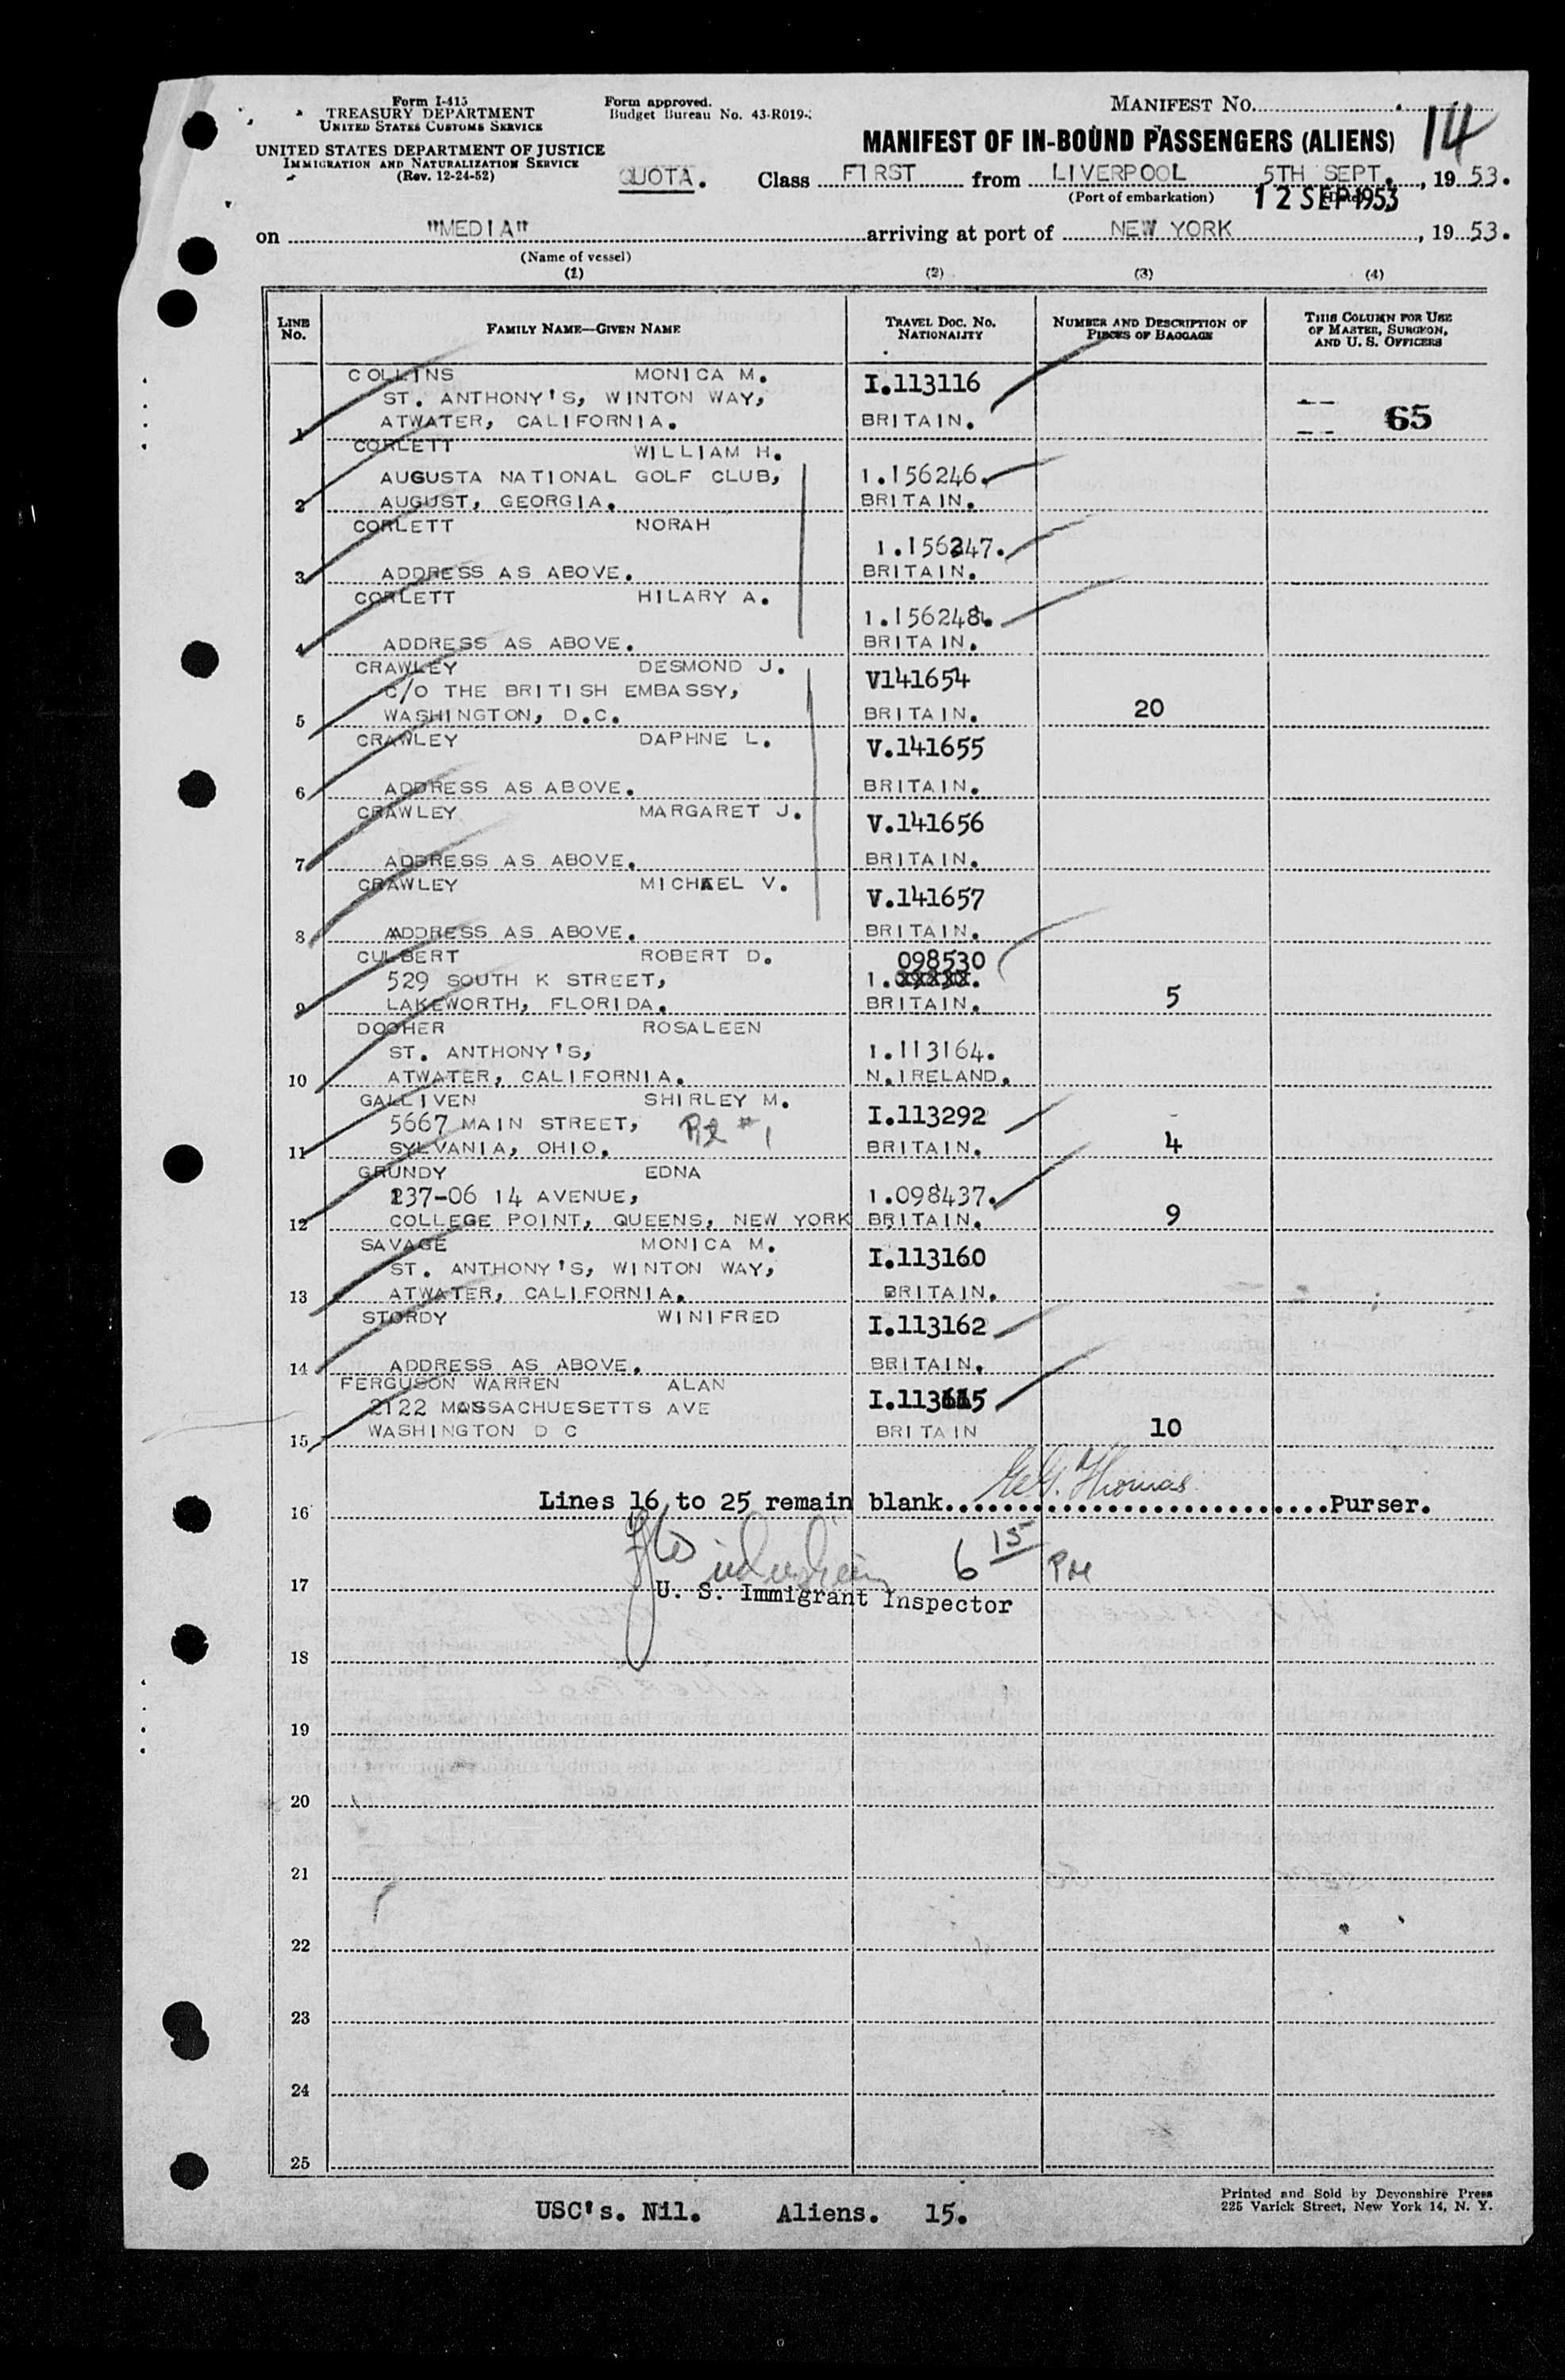 Form I-415
TREASURY DEPARTMENT
UNITED STATES CUSTOMS SERVICE
UNITED STATES DEPARTMENT OF JUSTICE
IMMIGRATION AND NATURALIZATION SERVICE
(Rev. 12-24-52)
Form approved.
Budget Bureau No. 43-R019-
MANIFEST NO.
14
MANIFEST OF IN-BOUND PASSENGERS (ALIENS)
QUOTA. Class FIRST from LIVERPOOL 5TH SEPT., 1953.
(Port of embarkation) 12 SEP 1953
on "MEDIA" arriving at port of NEW YORK, 1953.
(Name of vessel)
(1) (2) (3) (4)
LINE NO. FAMILY NAME—GIVEN NAME TRAVEL DOC. NO. NATIONALITY NUMBER AND DESCRIPTION OF PIECES OF BAGGAGE THIS COLUMN FOR USE OF MASTER, SURGEON, AND U. S. OFFICERS
COLLINS MONICA M. I.113116
ST. ANTHONY'S, WINTON WAY,
1 ATWATER, CALIFORNIA. BRITAIN. 65
CORLETT WILLIAM H.
AUGUSTA NATIONAL GOLF CLUB, I.156246.
2 AUGUST, GEORGIA. BRITAIN.
CORLETT NORAH
I.156247.
3 ADDRESS AS ABOVE. BRITAIN.
CORLETT HILARY A.
I.156248.
4 ADDRESS AS ABOVE. BRITAIN.
CRAWLEY DESMOND J. V141654
C/O THE BRITISH EMBASSY,
5 WASHINGTON, D.C. BRITAIN. 20
CRAWLEY DAPHNE L. V.141655
6 ADDRESS AS ABOVE. BRITAIN.
CRAWLEY MARGARET J. V.141656
7 ADDRESS AS ABOVE. BRITAIN.
CRAWLEY MICHAEL V. V.141657
8 ADDRESS AS ABOVE. BRITAIN.
CULBERT ROBERT D. 098530
529 SOUTH K STREET, I.
9 LAKEWORTH, FLORIDA. BRITAIN. 5
DOOHER ROSALEEN
ST. ANTHONY'S, I.113164.
10 ATWATER, CALIFORNIA. N.IRELAND.
GALLIVEN SHIRLEY M. I.113292
5667 MAIN STREET, #1
11 SYLVANIA, OHIO. BRITAIN. 4
GRUNDY EDNA
137-06 14 AVENUE, I.098437.
12 COLLEGE POINT, QUEENS, NEW YORK BRITAIN. 9
SAVAGE MONICA M. I.113160
ST. ANTHONY'S, WINTON WAY,
13 ATWATER, CALIFORNIA. BRITAIN.
STORDY WINIFRED I.113162
14 ADDRESS AS ABOVE. BRITAIN.
FERGUSON WARREN ALAN
2122 MASSACHUESETTS AVE
15 WASHINGTON D C BRITAIN 10
16 Lines 16 to 25 remain blank. Thomas Purser.
6 15 PM
17 U. S. Immigrant Inspector
18
19
20
21
22
23
24
25
USC's. Nil. Aliens. 15.
Printed and Sold by Devonshire Press
225 Varick Street, New York 14, N. Y.